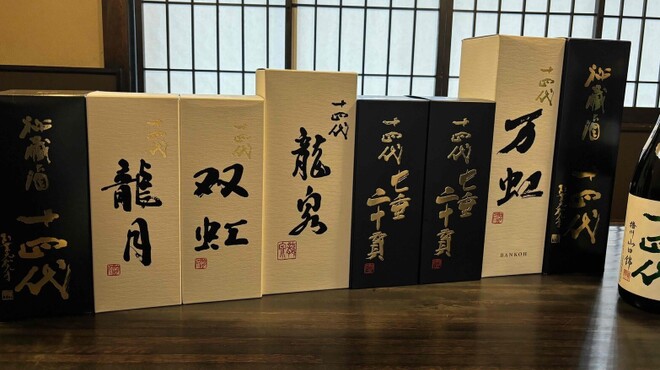 秘蔵酒
十四代
十四代
龍月
十四代
双虹
十四代
龍泉
十四代
七垂
二十貫
十四代
七垂
二十貫
十四代
万虹
BANKOH
秘蔵酒
十四代
十四代
播州山田錦